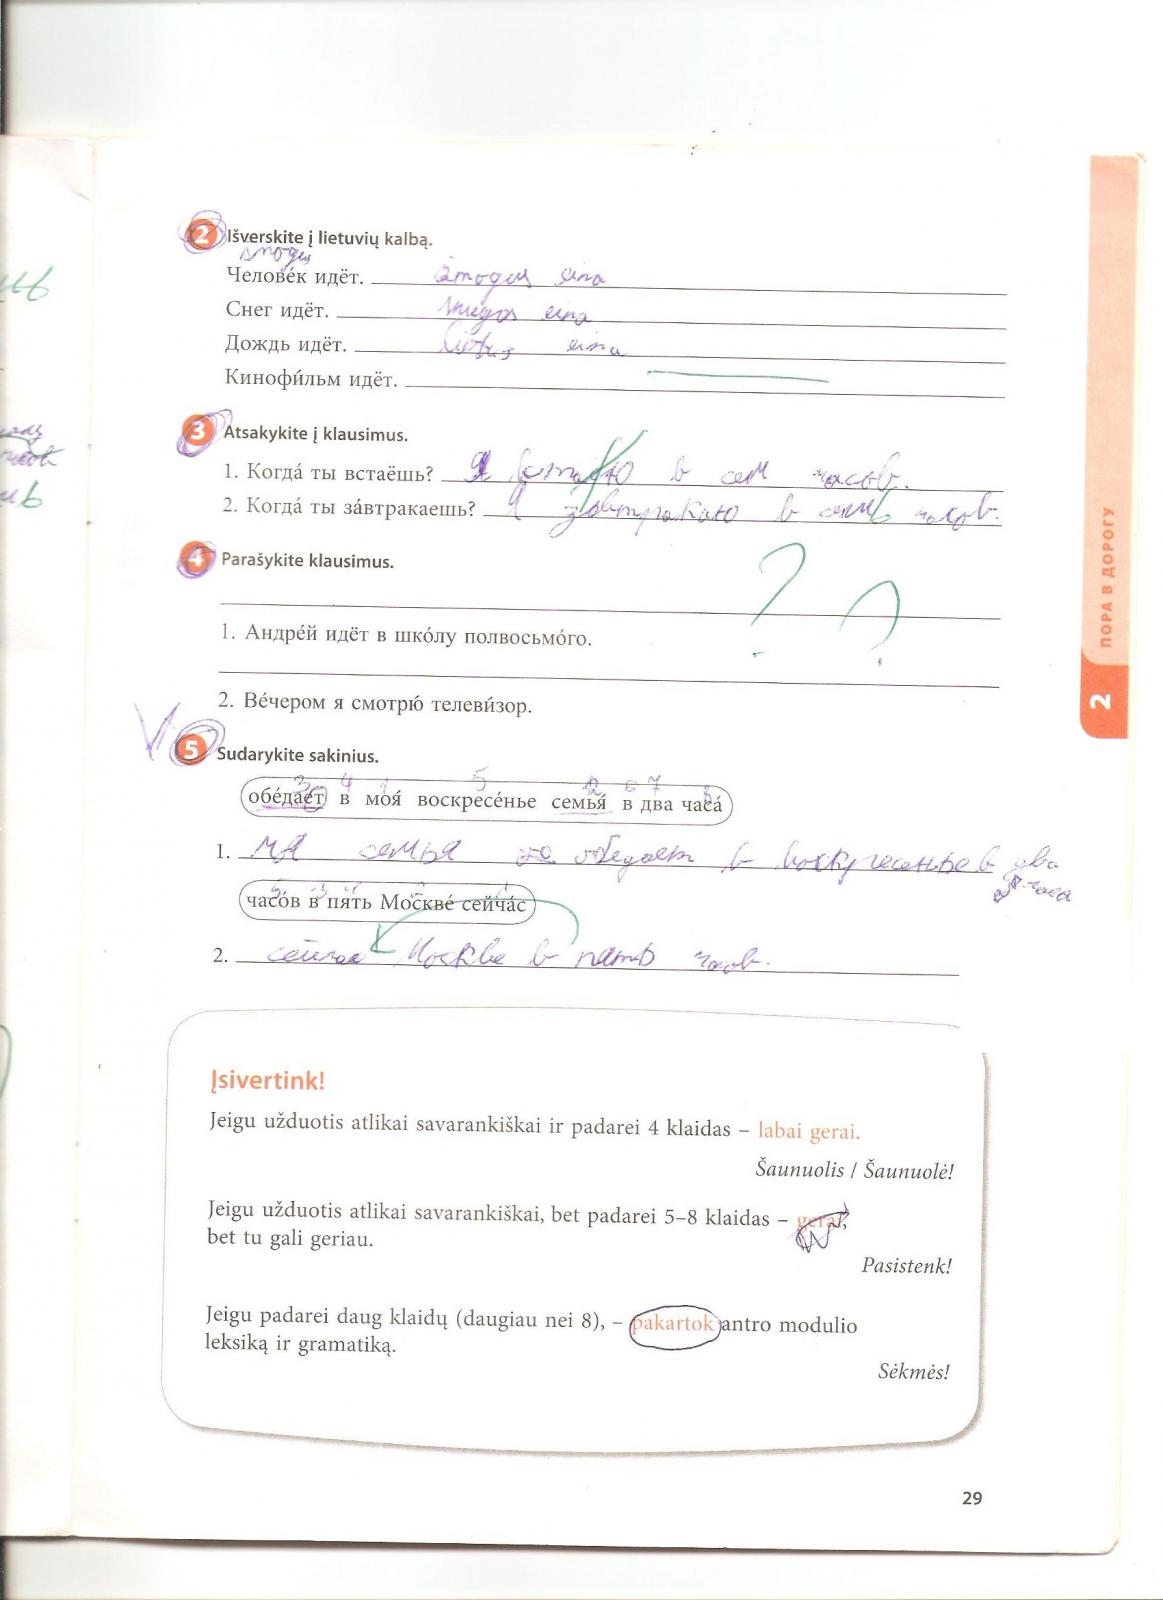 2 Išverskite į lietuvių kalbą.
žmogus
Челове́к идёт. žmogus eina
Снег идёт. sniegas eina
Дождь идёт. lietus eina
Кинофи́льм идёт.
3 Atsakykite į klausimus.
1. Когда́ ты встаёшь? Я встаю в сем часов.
2. Когда́ ты за́втракаешь? Я завтракаю в семь часов.
4 Parašykite klausimus.
? ?
1. Андре́й идёт в шко́лу полвосьмо́го.
2. Ве́чером я смотрю́ телеви́зор.
V 5 Sudarykite sakinius.
обе́дает в моя́ воскресе́нье семья́ в два часа́
1. моя семья обедает в воскресенье в два
часа
часо́в в пять Москве́ сейча́с
2. сейчас Москве в пять часов.
Įsivertink!
Jeigu užduotis atlikai savarankiškai ir padarei 4 klaidas – labai gerai.
Šaunuolis / Šaunuolė!
Jeigu užduotis atlikai savarankiškai, bet padarei 5–8 klaidas – gerai,
bet tu gali geriau.
Pasistenk!
Jeigu padarei daug klaidų (daugiau nei 8), – pakartok antro modulio
leksiką ir gramatiką.
Sėkmės!
29
ПОРА В ДОРОГУ
2